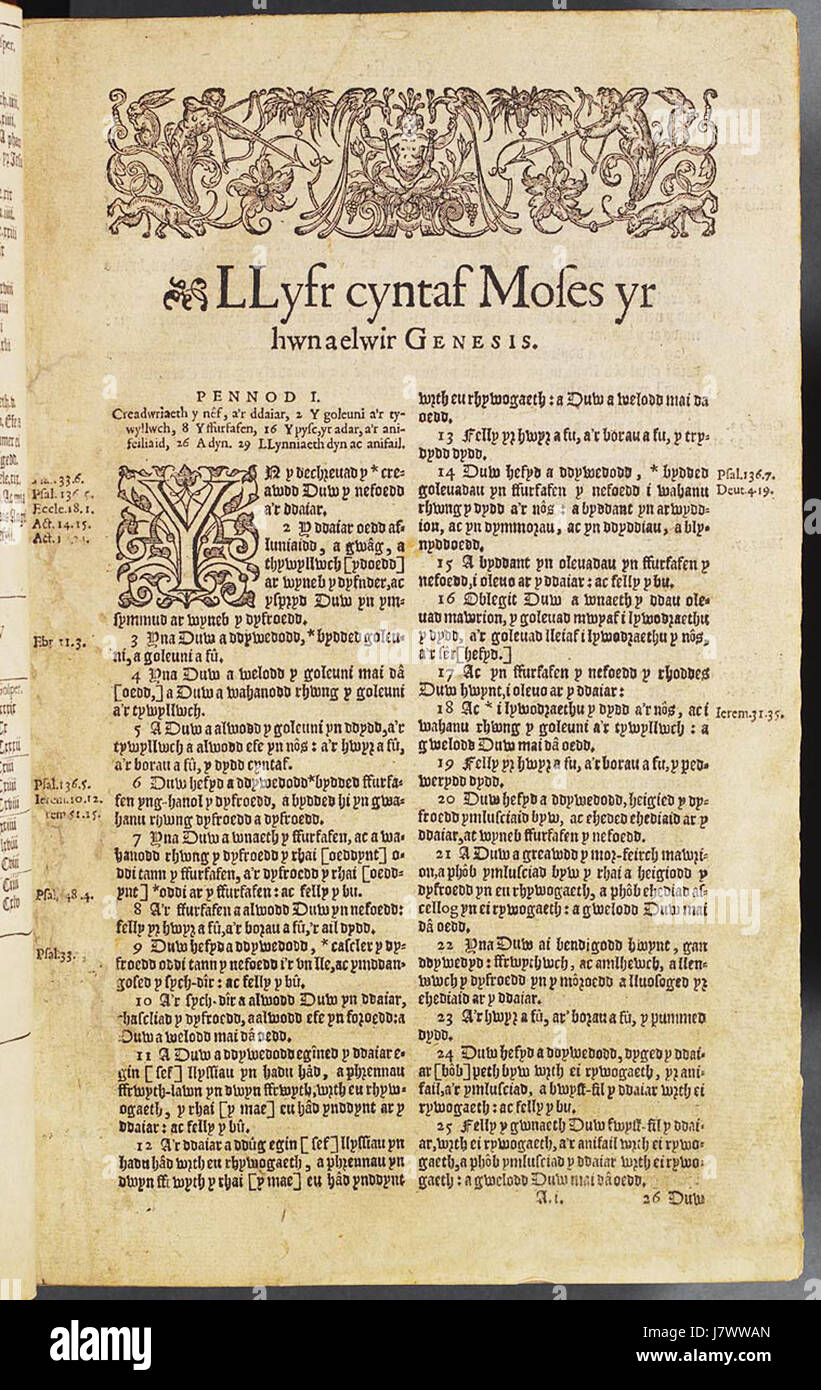 LLyfr cyntaf Moſes yr
hwn a elwir GENESIS.
PENNOD I.
Creadwriaeth y nêf, a'r ddaiar, 2 Y goleuni a'r ty-
wyllwch, 8 Y ffurfafen, 16 Y pyſc, yr adar, a'r ani-
feiliaid, 26 A dyn. 29 LLynniaeth dyn ac anifail.
YN y dechreuad y * cre-
awdd Duw y nefoedd
a'r ddaiar.
2 Y ddaiar oedd af-
luniaidd, a gwâg, a
thywyllwch [ydoedd]
ar wyneb y dyfnder, ac
yſpryd Duw yn ym-
ſymmud ar wyneb y dyfroedd.
3 Yna Duw a ddywedodd, * bydded goleu-
ni, a goleuni a fû.
4 Yna Duw a welodd y goleuni mai dâ
[oedd,] a Duw a wahanodd rhwng y goleuni
a'r tywyllwch.
5 A Duw a alwodd y goleuni yn ddydd, a'r
tywyllwch a alwodd efe yn nôs: a'r hwyr a fû,
a'r borau a fû, y dydd cyntaf.
6 Duw hefyd a ddywedodd * bydded ffurfa-
fen yng-hanol y dyfroedd, a bydded hi yn gwa-
hanu rhwng dyfroedd a dyfroedd.
7 Yna Duw a wnaeth y ffurfafen, ac a wa-
hanodd rhwng y dyfroedd y rhai [oeddynt] o-
ddi tann y ffurfafen, a'r dyfroedd y rhai [oedd-
ynt] * oddi ar y ffurfafen: ac felly y bu.
8 A'r ffurfafen a alwodd Duw yn nefoedd:
felly yr hwyr a fû, a'r borau a fû, 'r ail dydd.
9 Duw hefyd a ddywedodd, * caſcler y dy-
froedd oddi tann y nefoedd i'r vn lle, ac ymddan-
goſed y ſych-dir: ac felly y bû.
10 A'r ſych-dir a alwodd Duw yn ddaiar,
chaſcliad y dyfroedd, a alwodd efe yn foroedd: a
Duw a welodd mai dâ oedd.
11 A Duw a ddywedodd egîned y ddaiar e-
gin [ſef] llyſſiau yn hadu hâd, a phrennau
ffrwyth-lawn yn dwyn ffrwyth, wrth eu rhyw-
ogaeth, y rhai [y mae] eu hâd ynddynt ar y
ddaiar: ac felly y bû.
12 A'r ddaiar a ddûg egin [ſef] llyſſiau yn
hadu hâd wrth eu rhywogaeth, a phrennau yn
dwyn ffrwyth y rhai [y mae] eu hâd ynddynt
wrth eu rhywogaeth: a Duw a welodd mai da
oedd.
13 Felly yr hwyr a fu, a'r borau a fu, y try-
dydd dydd.
14 Duw hefyd a ddywedodd, * bydded
goleuadau yn ffurfafen y nefoedd i wahanu
rhwng y dydd a'r nôs: a byddant yn arwydd-
ion, ac yn dymmorau, ac yn ddyddiau, a bly-
nyddoedd.
15 A byddant yn oleuadau yn ffurfafen y
nefoedd, i oleuo ar y ddaiar: ac felly y bu.
16 Oblegit Duw a wnaeth y ddau ole-
uad mawrion, y goleuad mwyaf i lywodraethu
y dydd, a'r goleuad lleiaf i lywodraethu y nôs,
a'r ſêr [hefyd.]
17 Ac yn ffurfafen y nefoedd y rhoddes
Duw hwynt, i oleuo ar y ddaiar:
18 Ac * i lywodraethu y dydd a'r nôs, ac i
wahanu rhwng y goleuni a'r tywyllwch: a
gwelodd Duw mai dâ oedd.
19 Felly yr hwyr a fu, a'r borau a fu, y ped-
werydd dydd.
20 Duw hefyd a ddywedodd, heigied y dy-
froedd ymluſciaid byw, ac eheded ehediaid ar y
ddaiar, ar wyneb ffurfafen y nefoedd.
21 A Duw a greawdd y mor-feirch mawri-
on, a phôb ymluſciad byw y rhai a heigiodd y
dyfroedd yn eu rhywogaeth, a phôb ehediad aſ-
cellog yn ei rywogaeth: a gwelodd Duw mai
dâ oedd.
22 Yna Duw ai bendigodd hwynt, gan
ddywedyd: ffrwythwch, ac amlhewch, a llen-
wwch y dyfroedd yn y môroedd a lluoſoged yr
ehediaid ar y ddaiar.
23 A'r hwyr a fû, ar' borau a fû, y pummed
dydd.
24 Duw hefyd a ddywedodd, dyged y ddai-
ar [bôb] peth byw wrth ei rywogaeth, yr ani-
fail, a'r ymluſciad, a bwyſt-fil y ddaiar wrth ei
rywogaeth: ac felly y bu.
25 Felly y gwnaeth Duw fwyſt-fil y ddai-
ar, wrth ei rywogaeth, a'r anifail wrth ei rywo-
gaeth, a phôb ymluſciad y ddaiar wrth ei rywo-
gaeth: a gwelodd Duw mai dâ oedd.
A.i. 26 Duw
33.6.
Pſal.136.5.
Eccle.18.1.
Act.14.15.
Ebr 11.3.
Pſal.136.5.
Ierem.10.12.
rem 51.15.
Pſal,148.4.
Pſal.33.
Pſal.136.7.
Deut.4.19.
Ierem.31.35.
alamy
alamy stock photo
J7WWAN
www.alamy.com